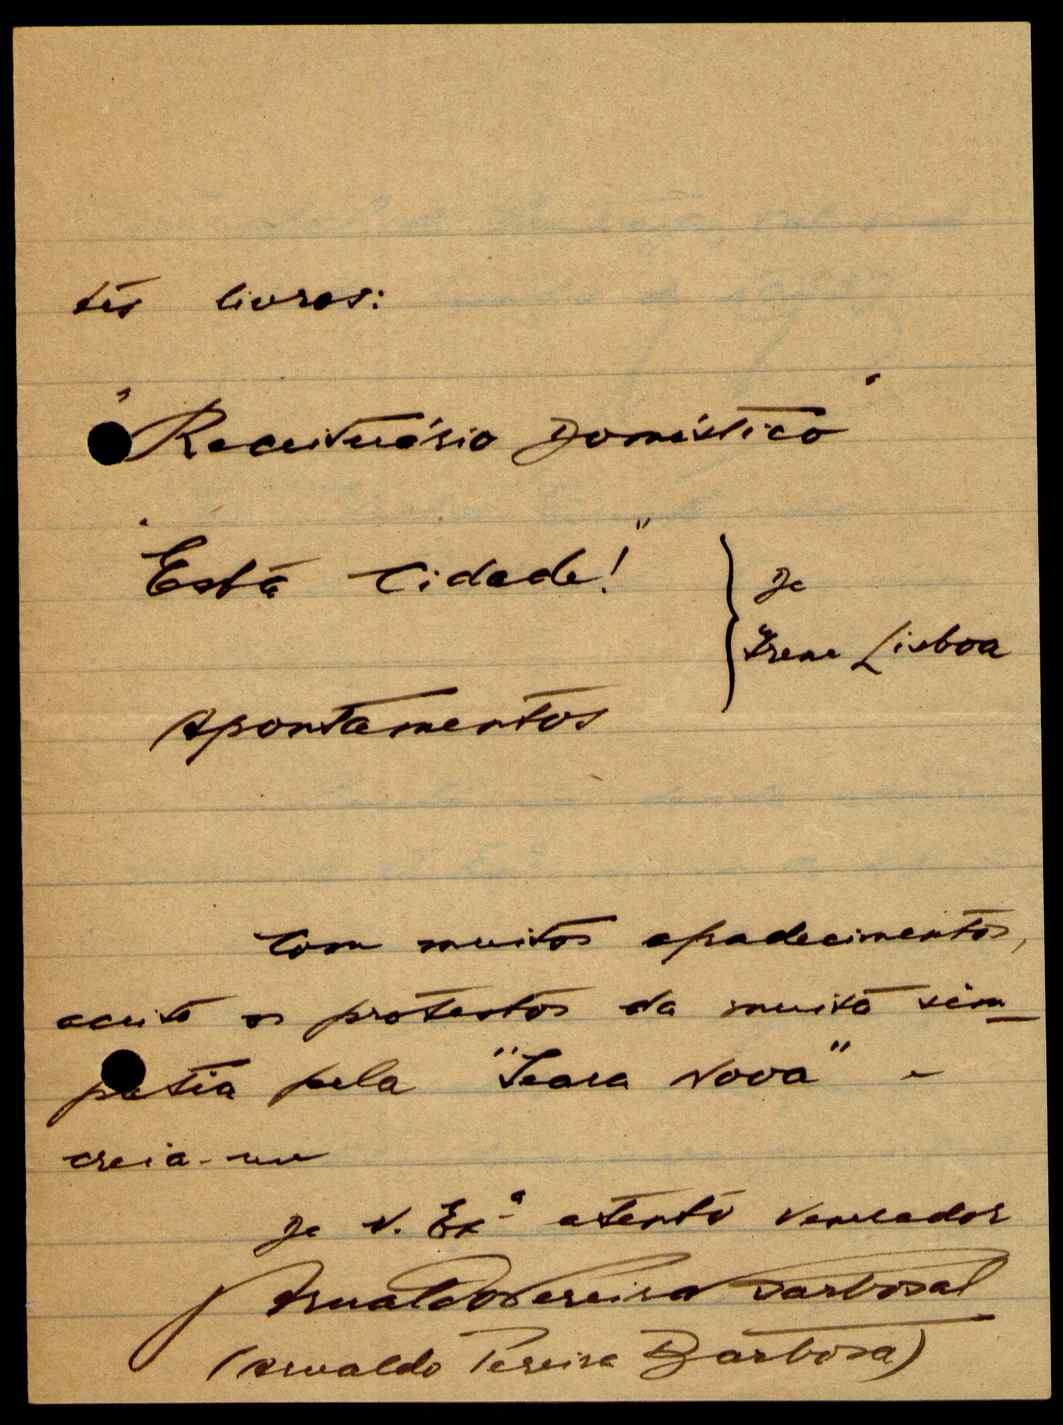 tes livros:
"Receituário Doméstico"
"Esta Cidade!"
De
Irene Lisboa
Apontamentos
Com muitos agradecimentos,
aceite os protestos da muita sim
patia pela "Seara Nova" e
creia-me
De V. Ex.ª atento venerador
Arnaldo Pereira Barbosa
(Arnaldo Pereira Barbosa)